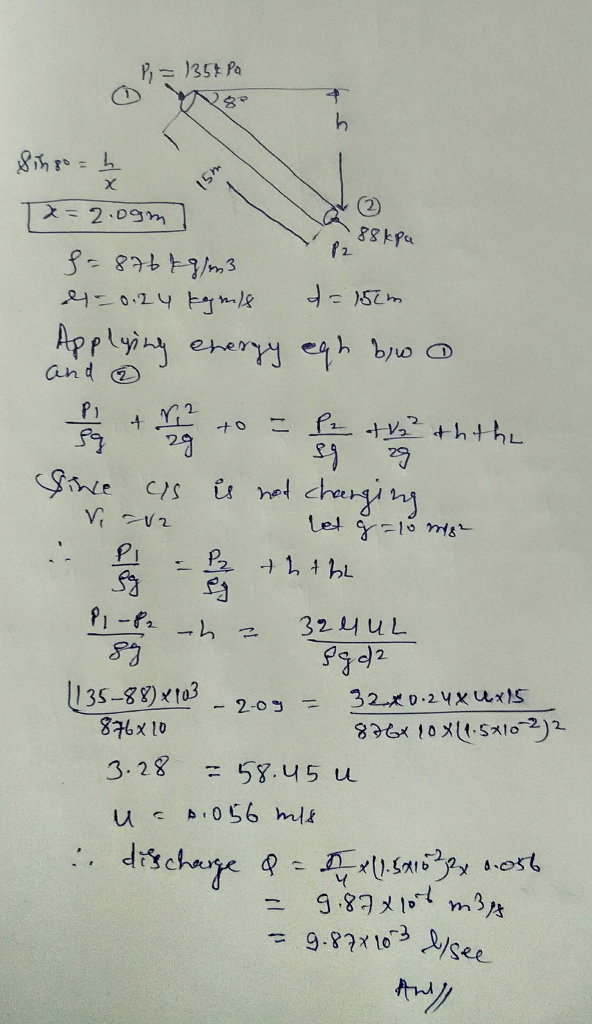 P₁ = 135kPa
① 8° h
Sin 8° = h/x
15m
x = 2.09m
②
88kpa
P₂
ρ = 876 kg/m3
μ = 0.24 kgm/s d = 15cm
Applying energy eqn b/w ①
and ②
P₁/ρg + V₁²/2g + 0 = P₂/ρg + V₂²/2g + h + hL
Since c/s is not changing
V₁ = V₂ Let g = 10 m/s²
∴ P₁/ρg = P₂/ρg + h + hL
P₁-P₂/ρg - h = 32μuL/ρgd²
(135-88)×10³/876×10 - 2.09 = 32×0.24×u×15/876×10×(1.5×10⁻²)²
3.28 = 58.45 u
u = 0.056 m/s
∴ discharge Q = π/4 × (1.5×10⁻²)² × 0.056
= 9.87×10⁻⁶ m3/s
= 9.87×10⁻³ l/sec
Ans//